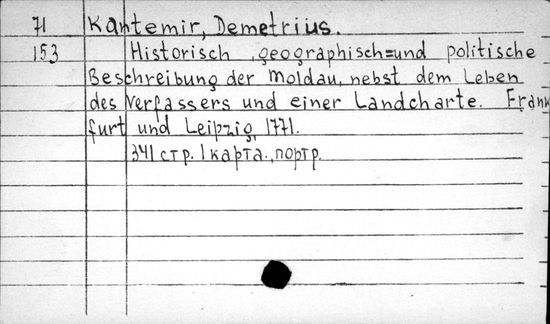 71 Kantemir, Demetrius.
153 Historisch, geographisch=und politische
Beschreibung der Moldau, nebst dem Leben
des Verfassers und einer Landcharte. Frank
furt und Leipzig, 1771.
341 стр. 1 карта., портр.